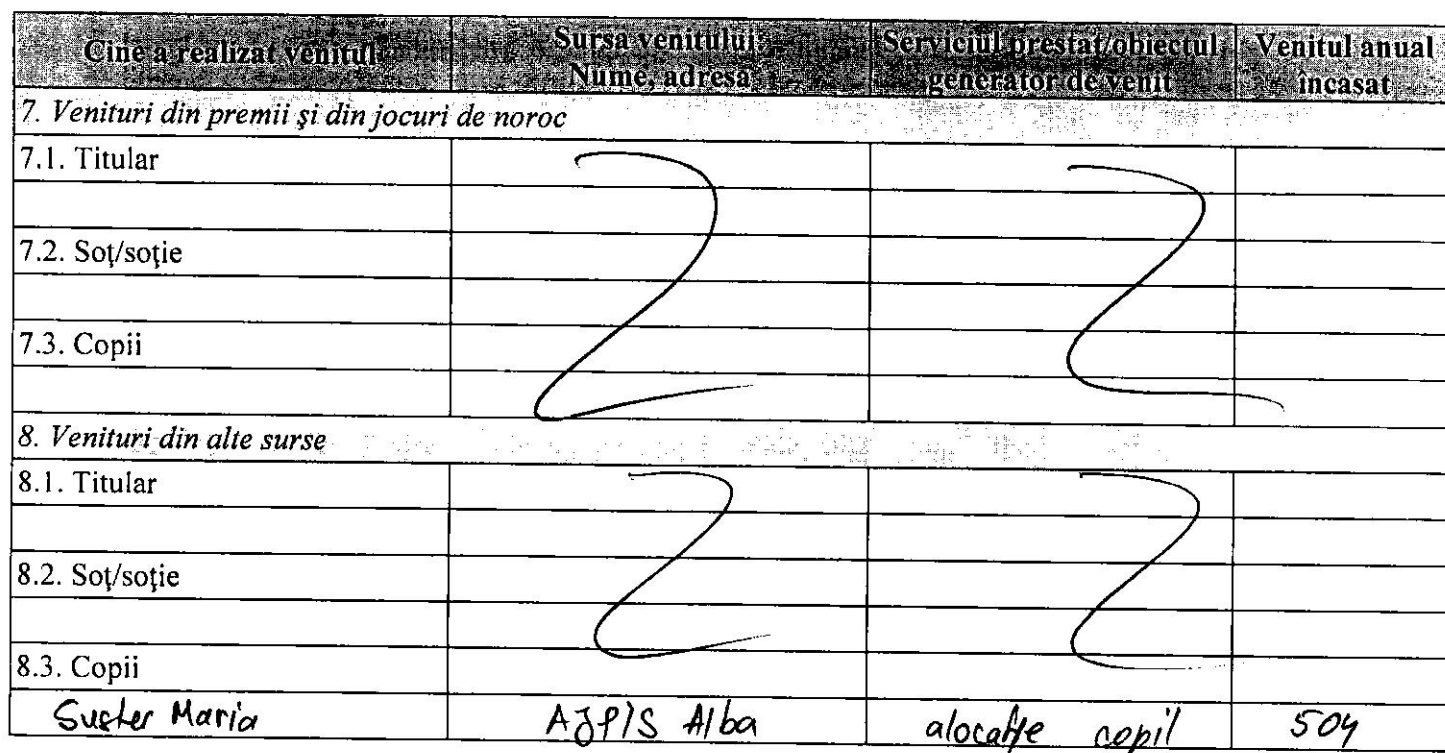 Cine a realizat venitul Sursa venitului: Nume, adresa Serviciul prestat/obiectul generator de venit Venitul anual încasat
7. Venituri din premii şi din jocuri de noroc
7.1. Titular
7.2. Soţ/soţie
7.3. Copii
8. Venituri din alte surse
8.1. Titular
8.2. Soţ/soţie
8.3. Copii
Suster Maria AJPIS Alba alocaţie copil 504